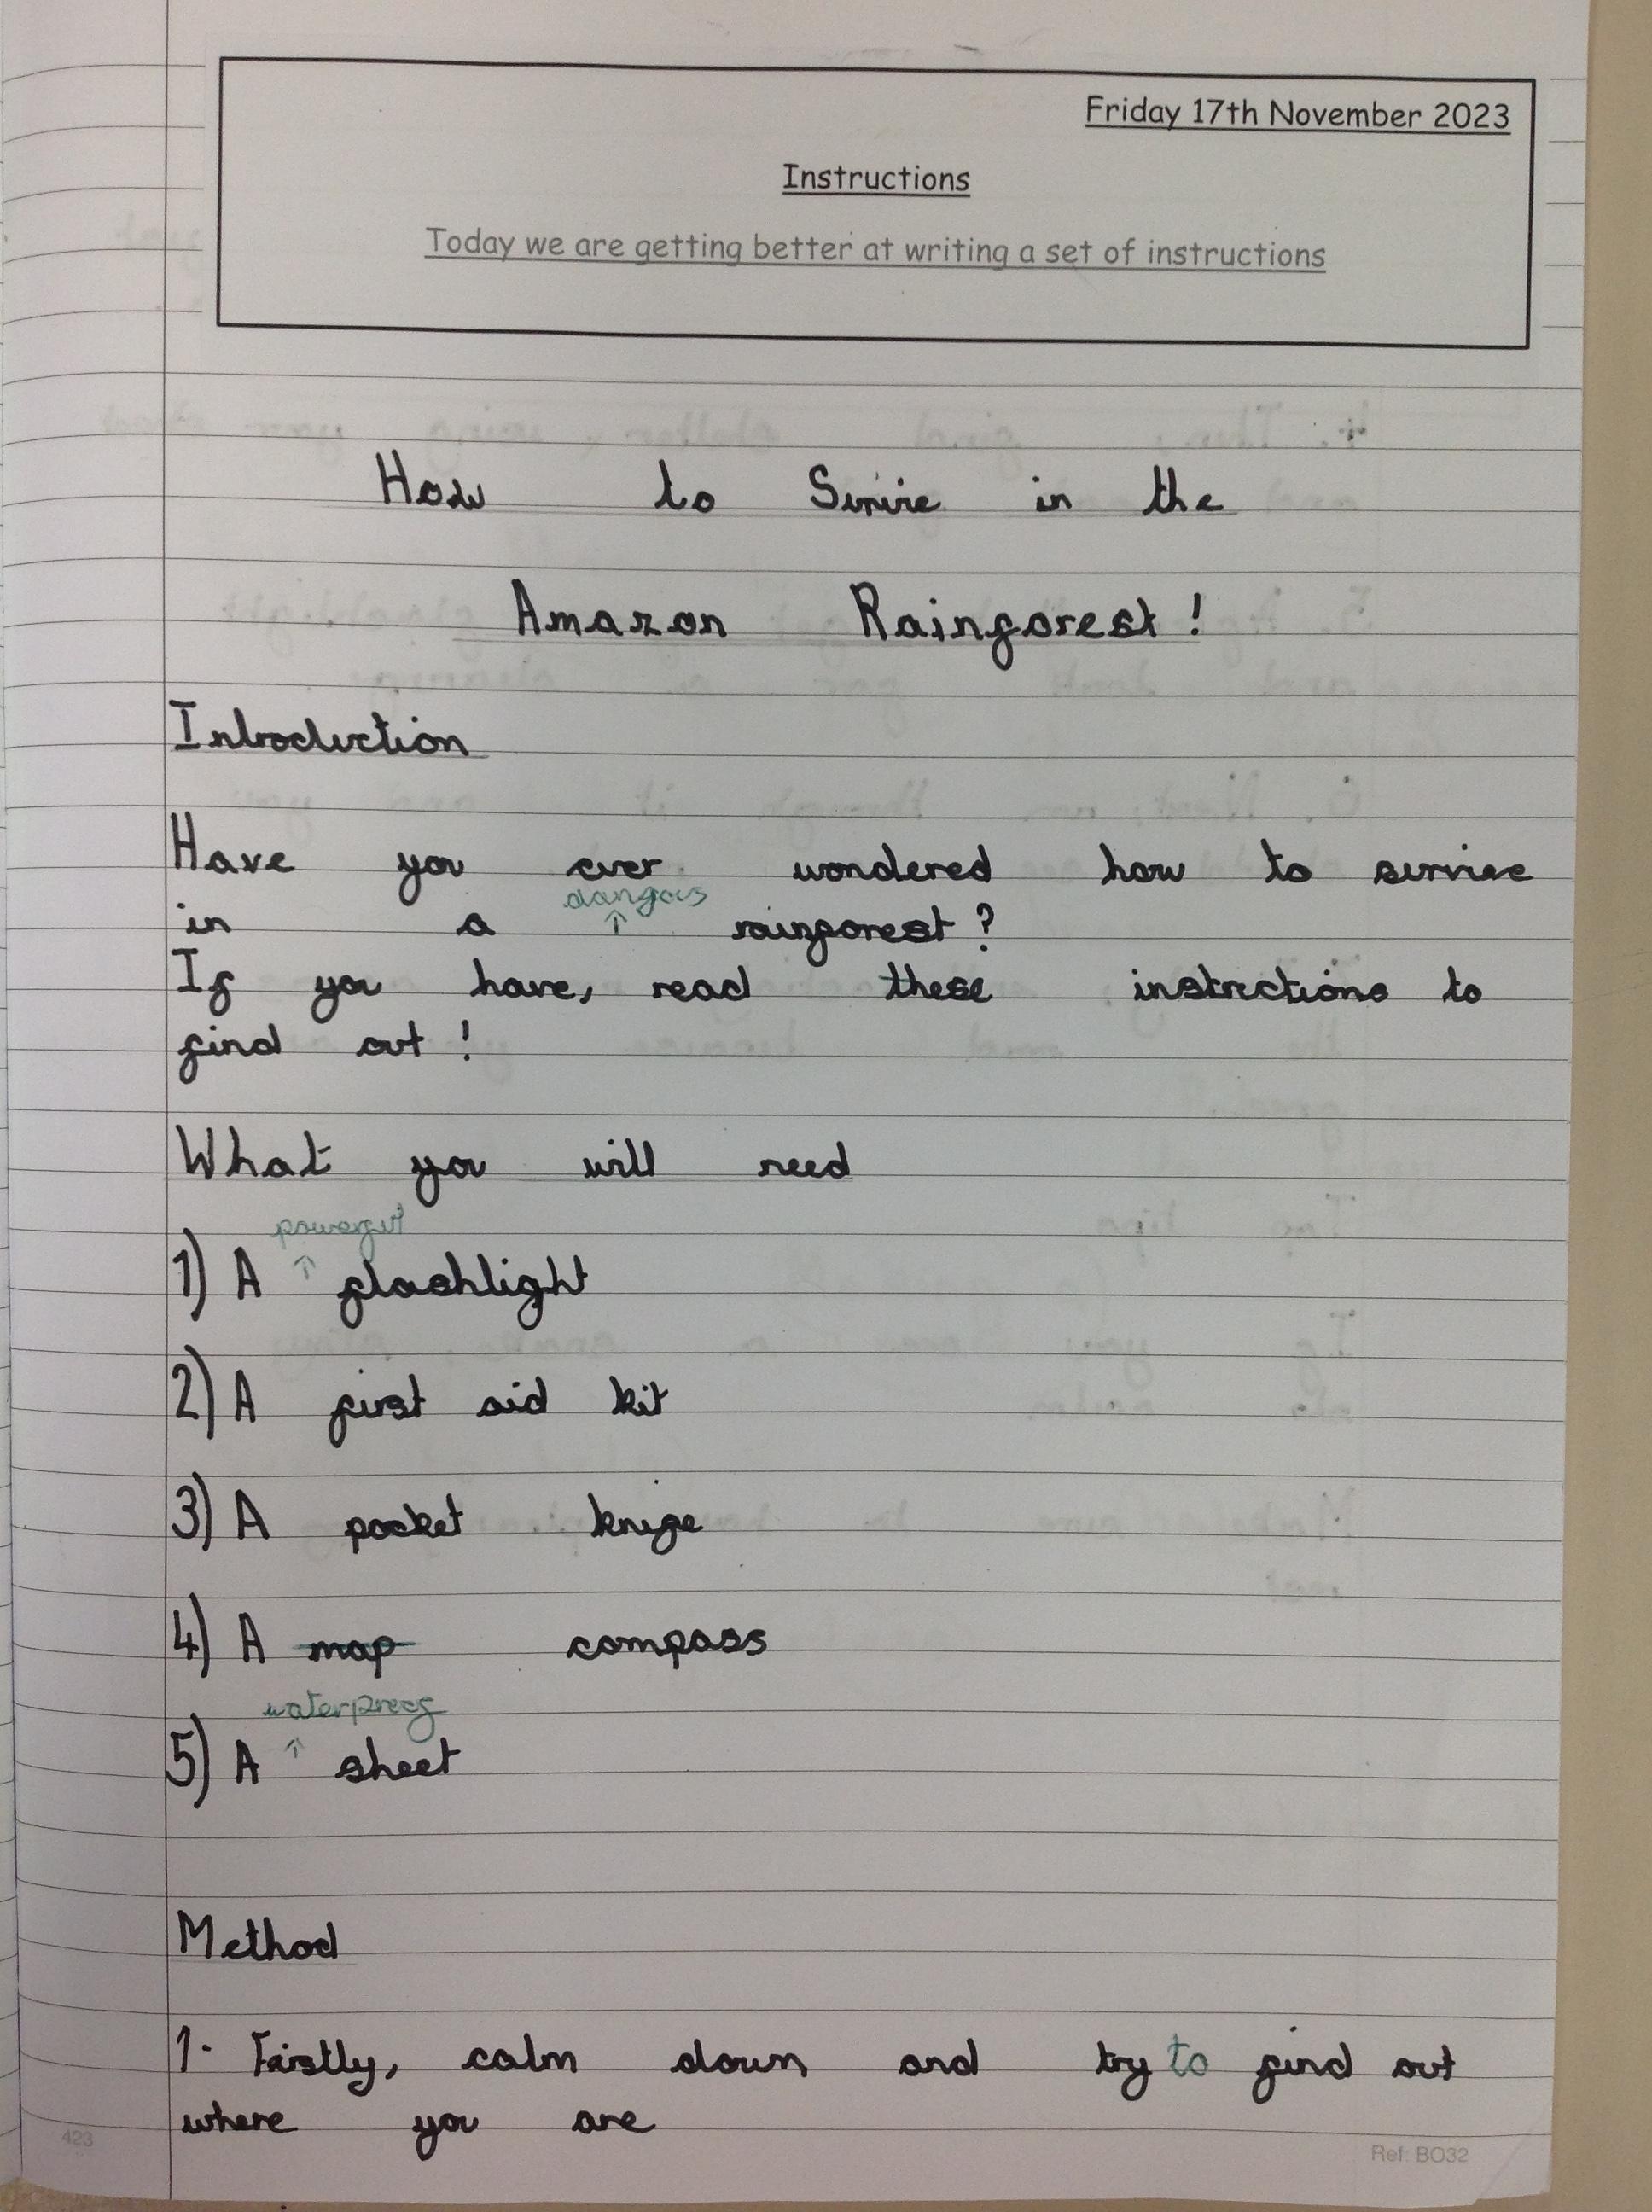 Friday 17th November 2023
Instructions
Today we are getting better at writing a set of instructions
How to Survive in the
Amazon Rainforest!
Introduction
Have you ever wondered how to survive
dangous
in a rainforest?
If you have, read these instructions to
find out!
What you will need
powerful
1) A flashlight
2) A first aid kit
3) A pocket knife
4) A map compass
waterproof
5) A sheet
Method
1. Firstly, calm down and try to find out
where you are
423
Ref: BO32